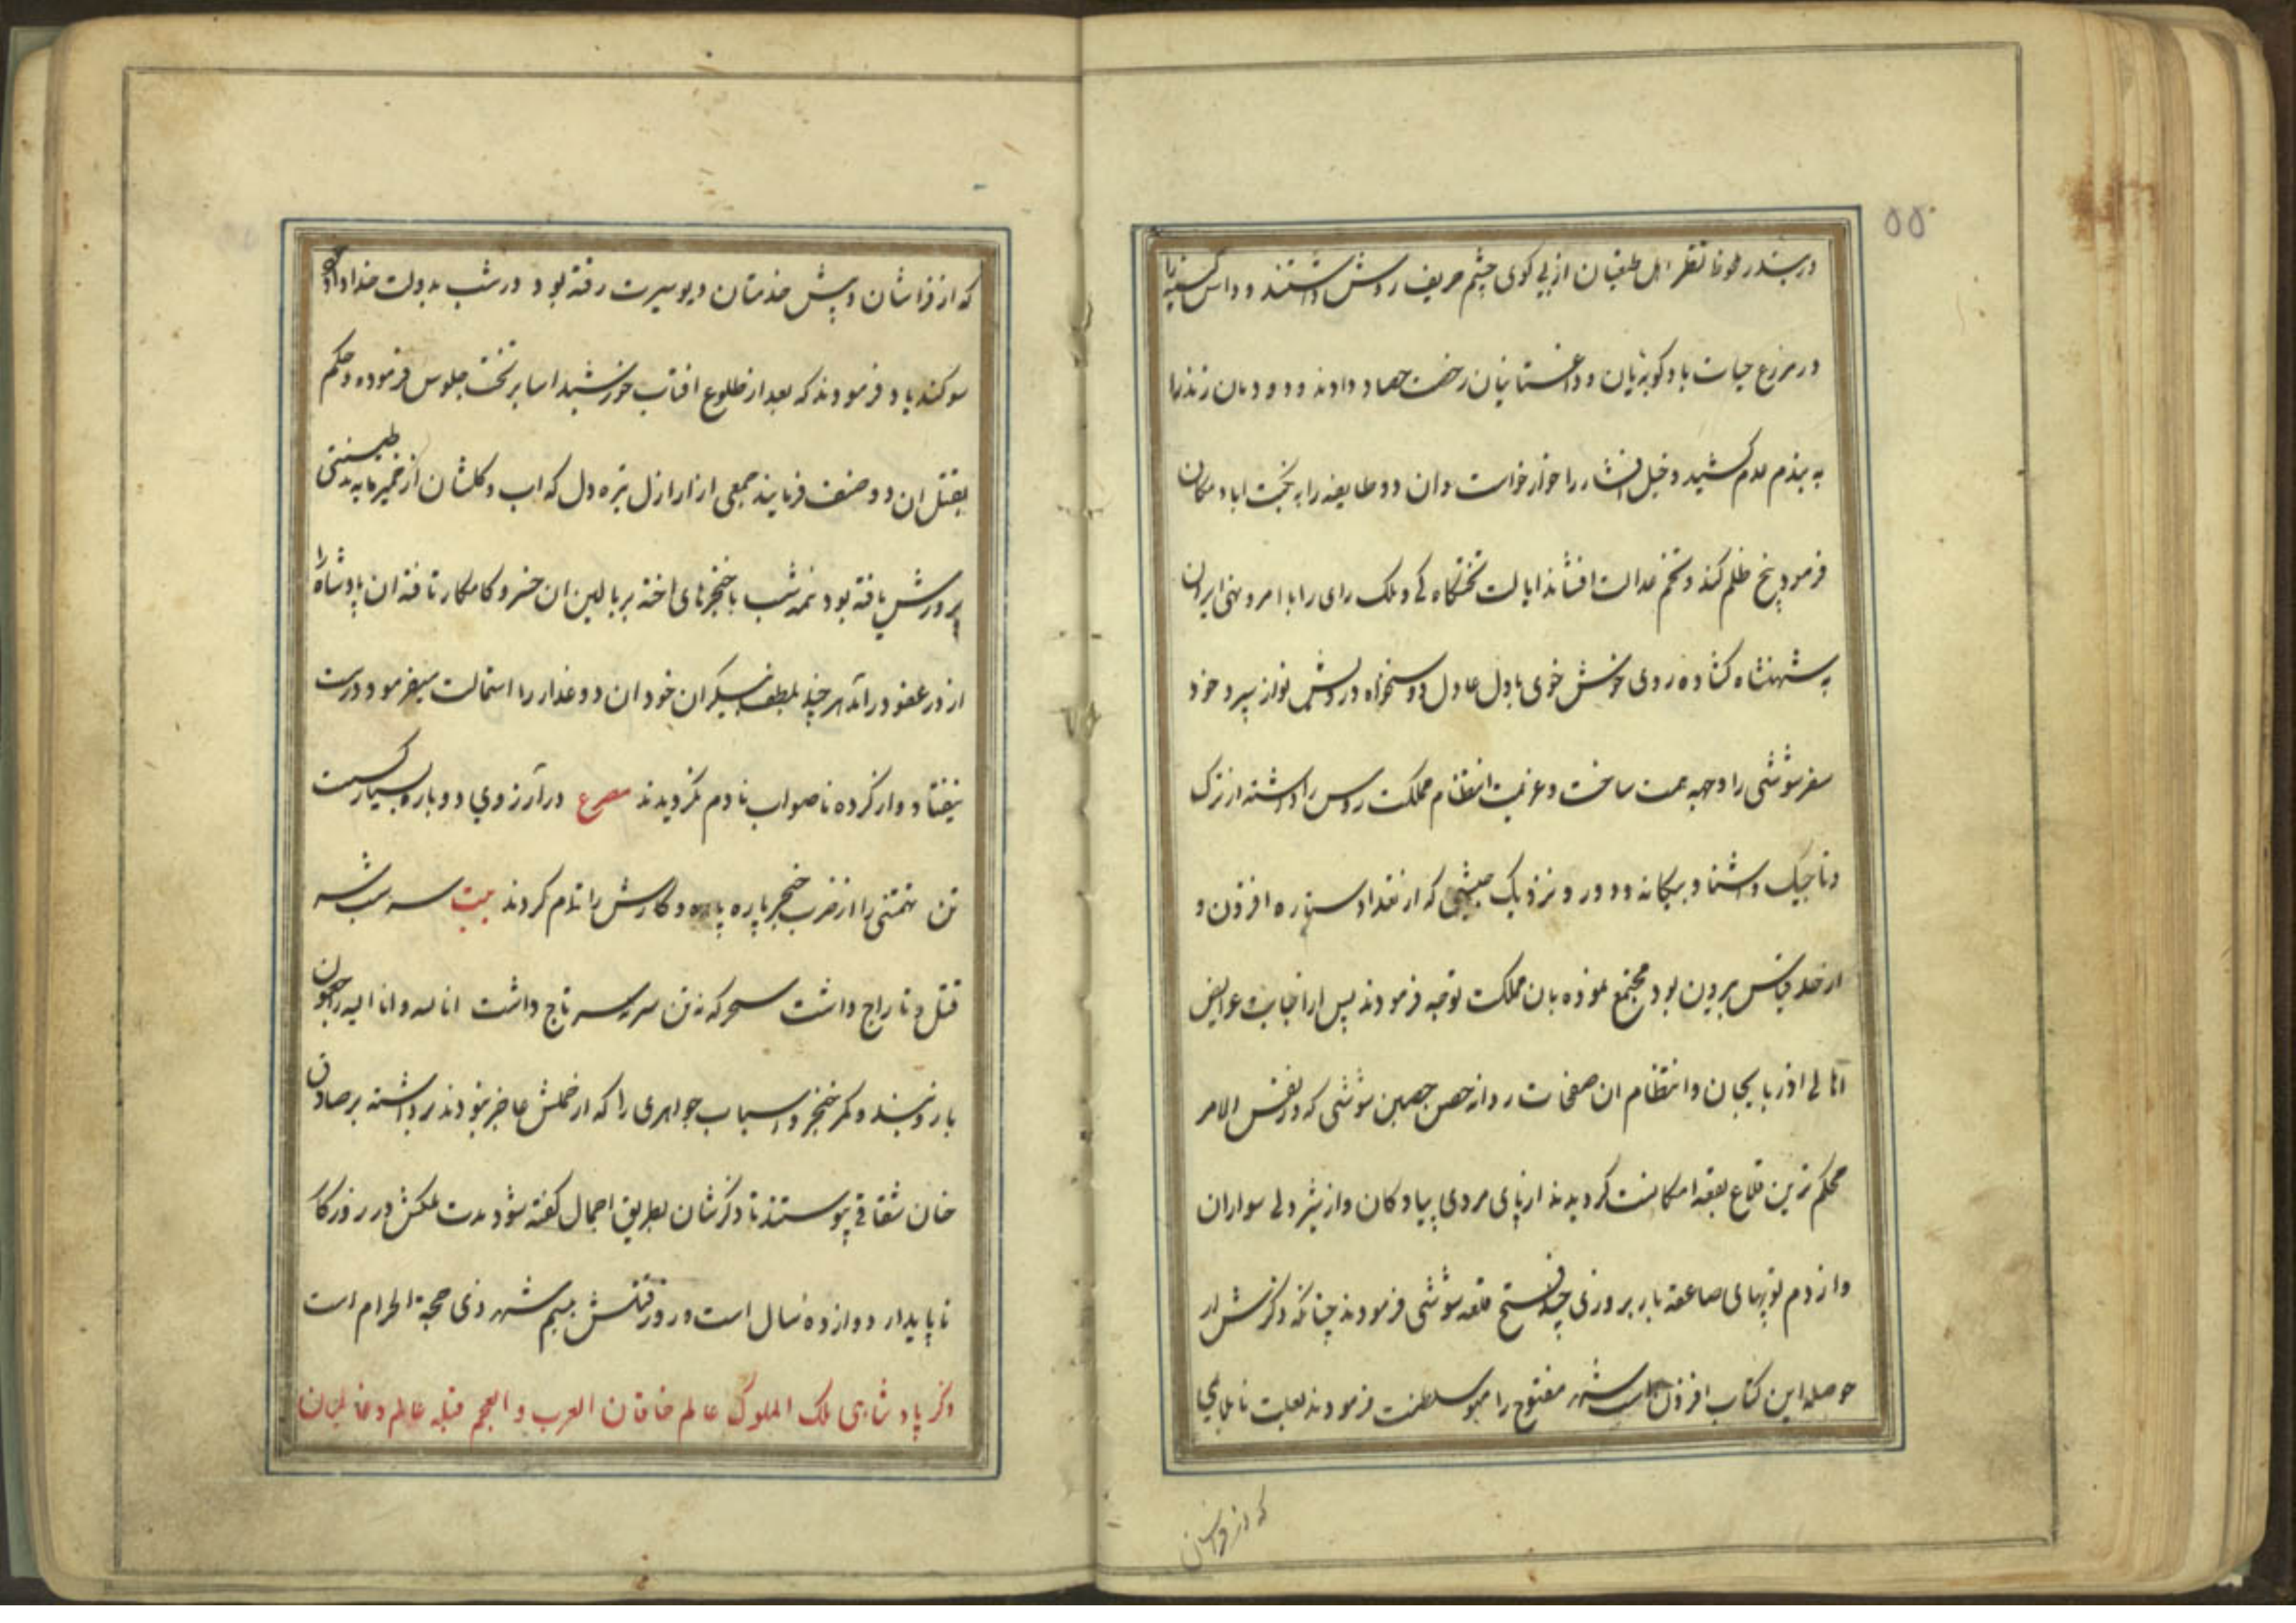 ۵۵
در بندر ملحوظ نظر اهل طغیان از پی کوی چشم حریف روشن داشتند و داس
در مزرع حیات بادکوبژیان و داغستانیان رخصت حصاد دادند و دودمان زند را
به هیذم عدم کشید و خیل افشار را خوار خواست و ان دو طایفه را به نجت اباد مکان
فرمود بیخ ظلم کند و تخم عدالت افشاند ایالت تختگاه کی و ملک رای را با امر و نهی ایران
به شهنشاه کشاده روی خوش خوی بادل عادل دوستخواه درویش نواز سپرد خود
سفر شوشی را وجهه همت ساخت و عزیمت انتظام مملکت روس را داشته از ترک
و تاجیک و اشنا و بیکانه و دور و نزدیک جیشی که از تعداد ستاره افزون و
از حد قیاس بیرون بود مجتمع نموده بان مملکت توجه فرمودند پس از انجاب عرایض
اهالی اذربایجان و انتظام ان صفحات روانه حصن حصین شوشی که در نفس الامر
محکم ترین قلاع بقعه امکانست کردیدند از پای مردی پیادکان و از شیر دلی سواران
و از دم توپهای صاعقه بار بروزی چند فتح قلعه شوشی فرمودند چنانکه ذکرش از
حوصله این کتاب افزون است شهر مفتوح را مبو سلطنت فرمودند بعلت ناملایمی
که از فراشان
که از فراشان و پیش خدمتان دیو سیرت رفته بود در شب بدولت خداداد خود
سوکند یاد فرمودند که بعد از طلوع افتاب خورشید اسا بر تخت جلوس فرموده و حکم
بقتل ان دو صنف فرمایند جمعی از اراذل تیره دل که اب و کلشان از خمیر مایه بد طینتی
پرورش یافته بود نیمه شب با خنجرهای اخته بر بالین ان خسرو کامکار تافته ان پادشاه را
از در عفو درآمد هر چند بلطف بیکران خود ان دو غدار را استمالت میفرمود درست
نیفتاد و از کرده ناصواب نادم نکردیدند مصرع در آرزوی دو باره بسیار کسست
تن تهمتنی را از ضرب خنجر پاره پاره و کارش را تمام کردند بیت سر شب سر
قتل و تاراج داشت سحرکه نه تن سر نه سر تاج داشت انا لله و انا الیه راجعون
بازوبند و کمر خنجر و اسباب جواهری را که از حملش عاجز نبودند برداشته بر صادق
خان شقاقی پیوستند تا ذکرشان بطریق اجمال کفته شود مدت ملکش در روزکار
ناپایدار دوازده سال است و روز قتلش بیسم شهر ذی حجة الحرام است
ذکر پادشاهی ملک الملوک عالم خاقان العرب و العجم قبله عالم و عالمیان